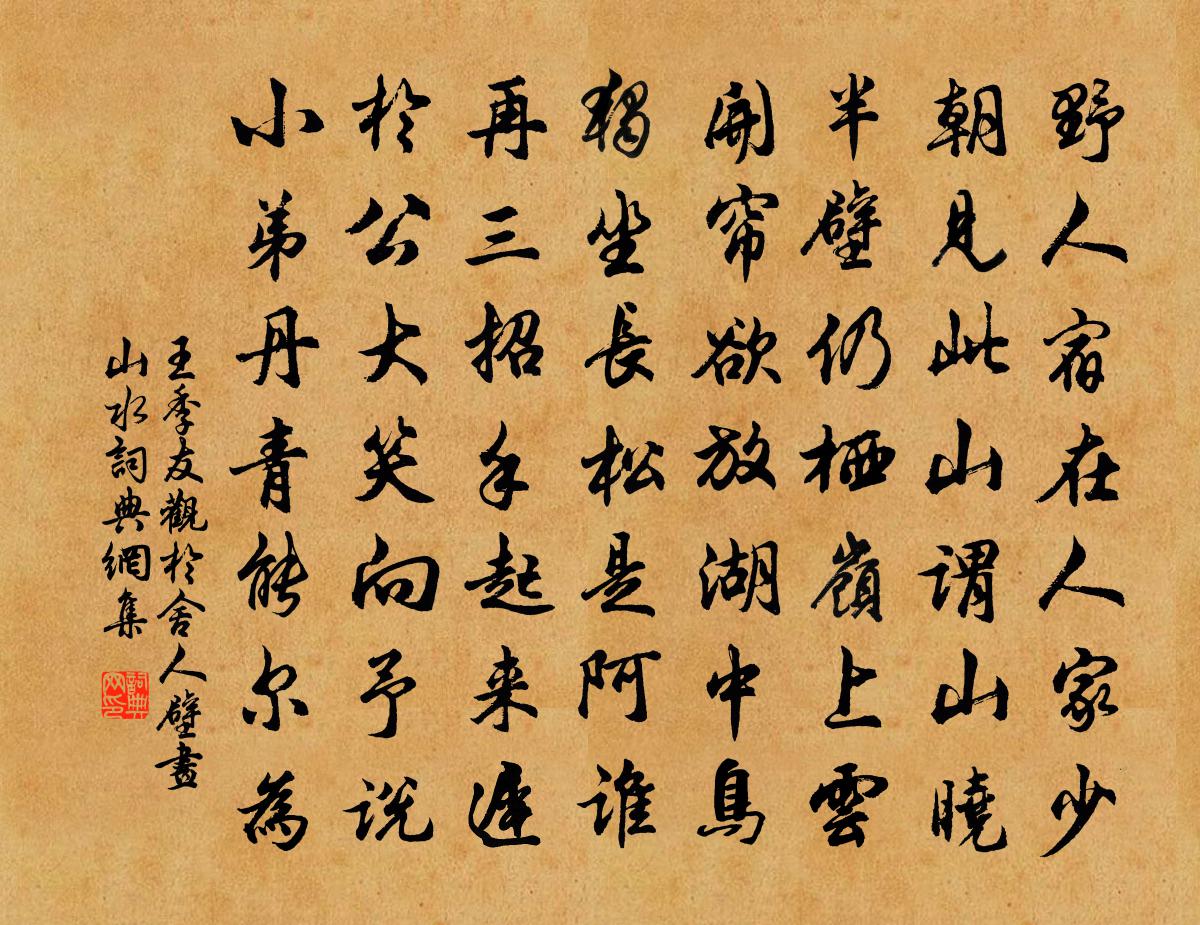 野人宿在人家少
朝見此山謂山曉
半壁仍栖嶺上雲
開帘欲放湖中鳥
獨坐長松是阿誰
再三招手起来遲
於公大笑向予説
小弟丹青能尔為
王季友觀於舍人壁畫
山水詞典網集
詞典网印